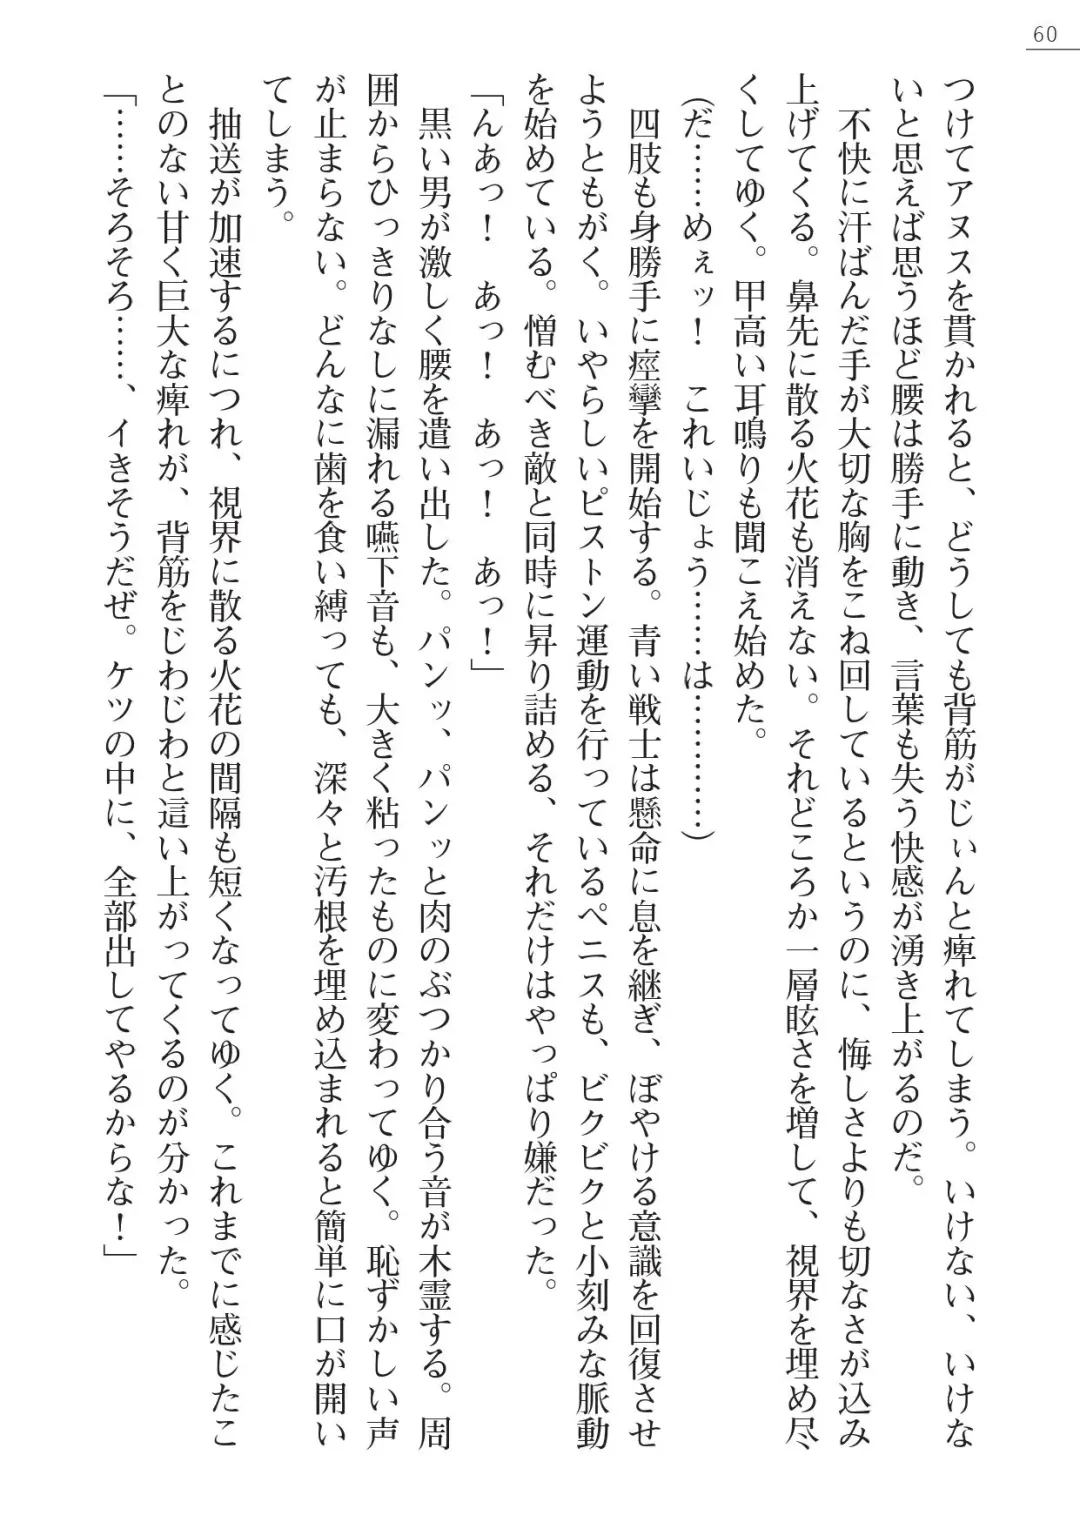 60
つけてアヌスを貫かれると、どうしても背筋がじぃんと痺れてしまう。いけない、いけな
いと思えば思うほど腰は勝手に動き、言葉も失う快感が湧き上がるのだ。
不快に汗ばんだ手が大切な胸をこね回しているというのに、悔しさよりも切なさが込み
上げてくる。鼻先に散る火花も消えない。それどころか一層眩さを増して、視界を埋め尽
くしてゆく。甲高い耳鳴りも聞こえ始めた。
(だ……めぇッ！　これいじょう……は…………)
四肢も身勝手に痙攣を開始する。青い戦士は懸命に息を継ぎ、ぼやける意識を回復させ
ようともがく。いやらしいピストン運動を行っているペニスも、ビクビクと小刻みな脈動
を始めている。憎むべき敵と同時に昇り詰める、それだけはやっぱり嫌だった。
「んあっ！　あっ！　あっ！　あっ！」
黒い男が激しく腰を遣い出した。パンッ、パンッと肉のぶつかり合う音が木霊する。周
囲からひっきりなしに漏れる嚥下音も、大きく粘ったものに変わってゆく。恥ずかしい声
が止まらない。どんなに歯を食い縛っても、深々と汚根を埋め込まれると簡単に口が開い
てしまう。
抽送が加速するにつれ、視界に散る火花の間隔も短くなってゆく。これまでに感じたこ
とのない甘く巨大な痺れが、背筋をじわじわと這い上がってくるのが分かった。
「……そろそろ……、イきそうだぜ。ケツの中に、全部出してやるからな！」